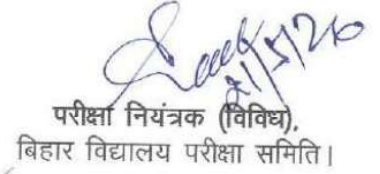 21/5/26
परीक्षा नियंत्रक (विविध),
बिहार विद्यालय परीक्षा समिति।